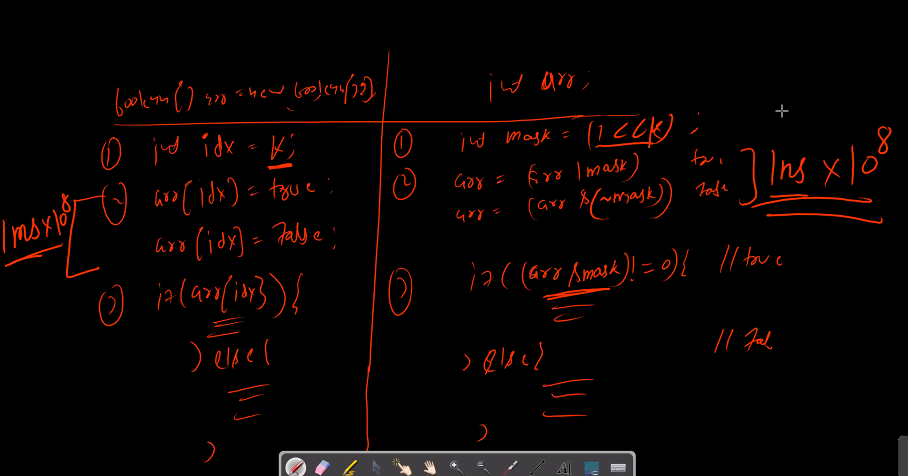 boolean[] arr = new boolean[32];
① int idx = K;
② arr[idx] = true;
arr[idx] = False;
1ms x 10^8
③ if(arr[idx]) {
} else {
}
int arr;
① int mask = (1 << K);
② arr = (arr | mask) true
arr = (arr & (~mask)) False
1ns x 10^8
③ if ((arr & mask) != 0) { // true
} else { // Fal
}